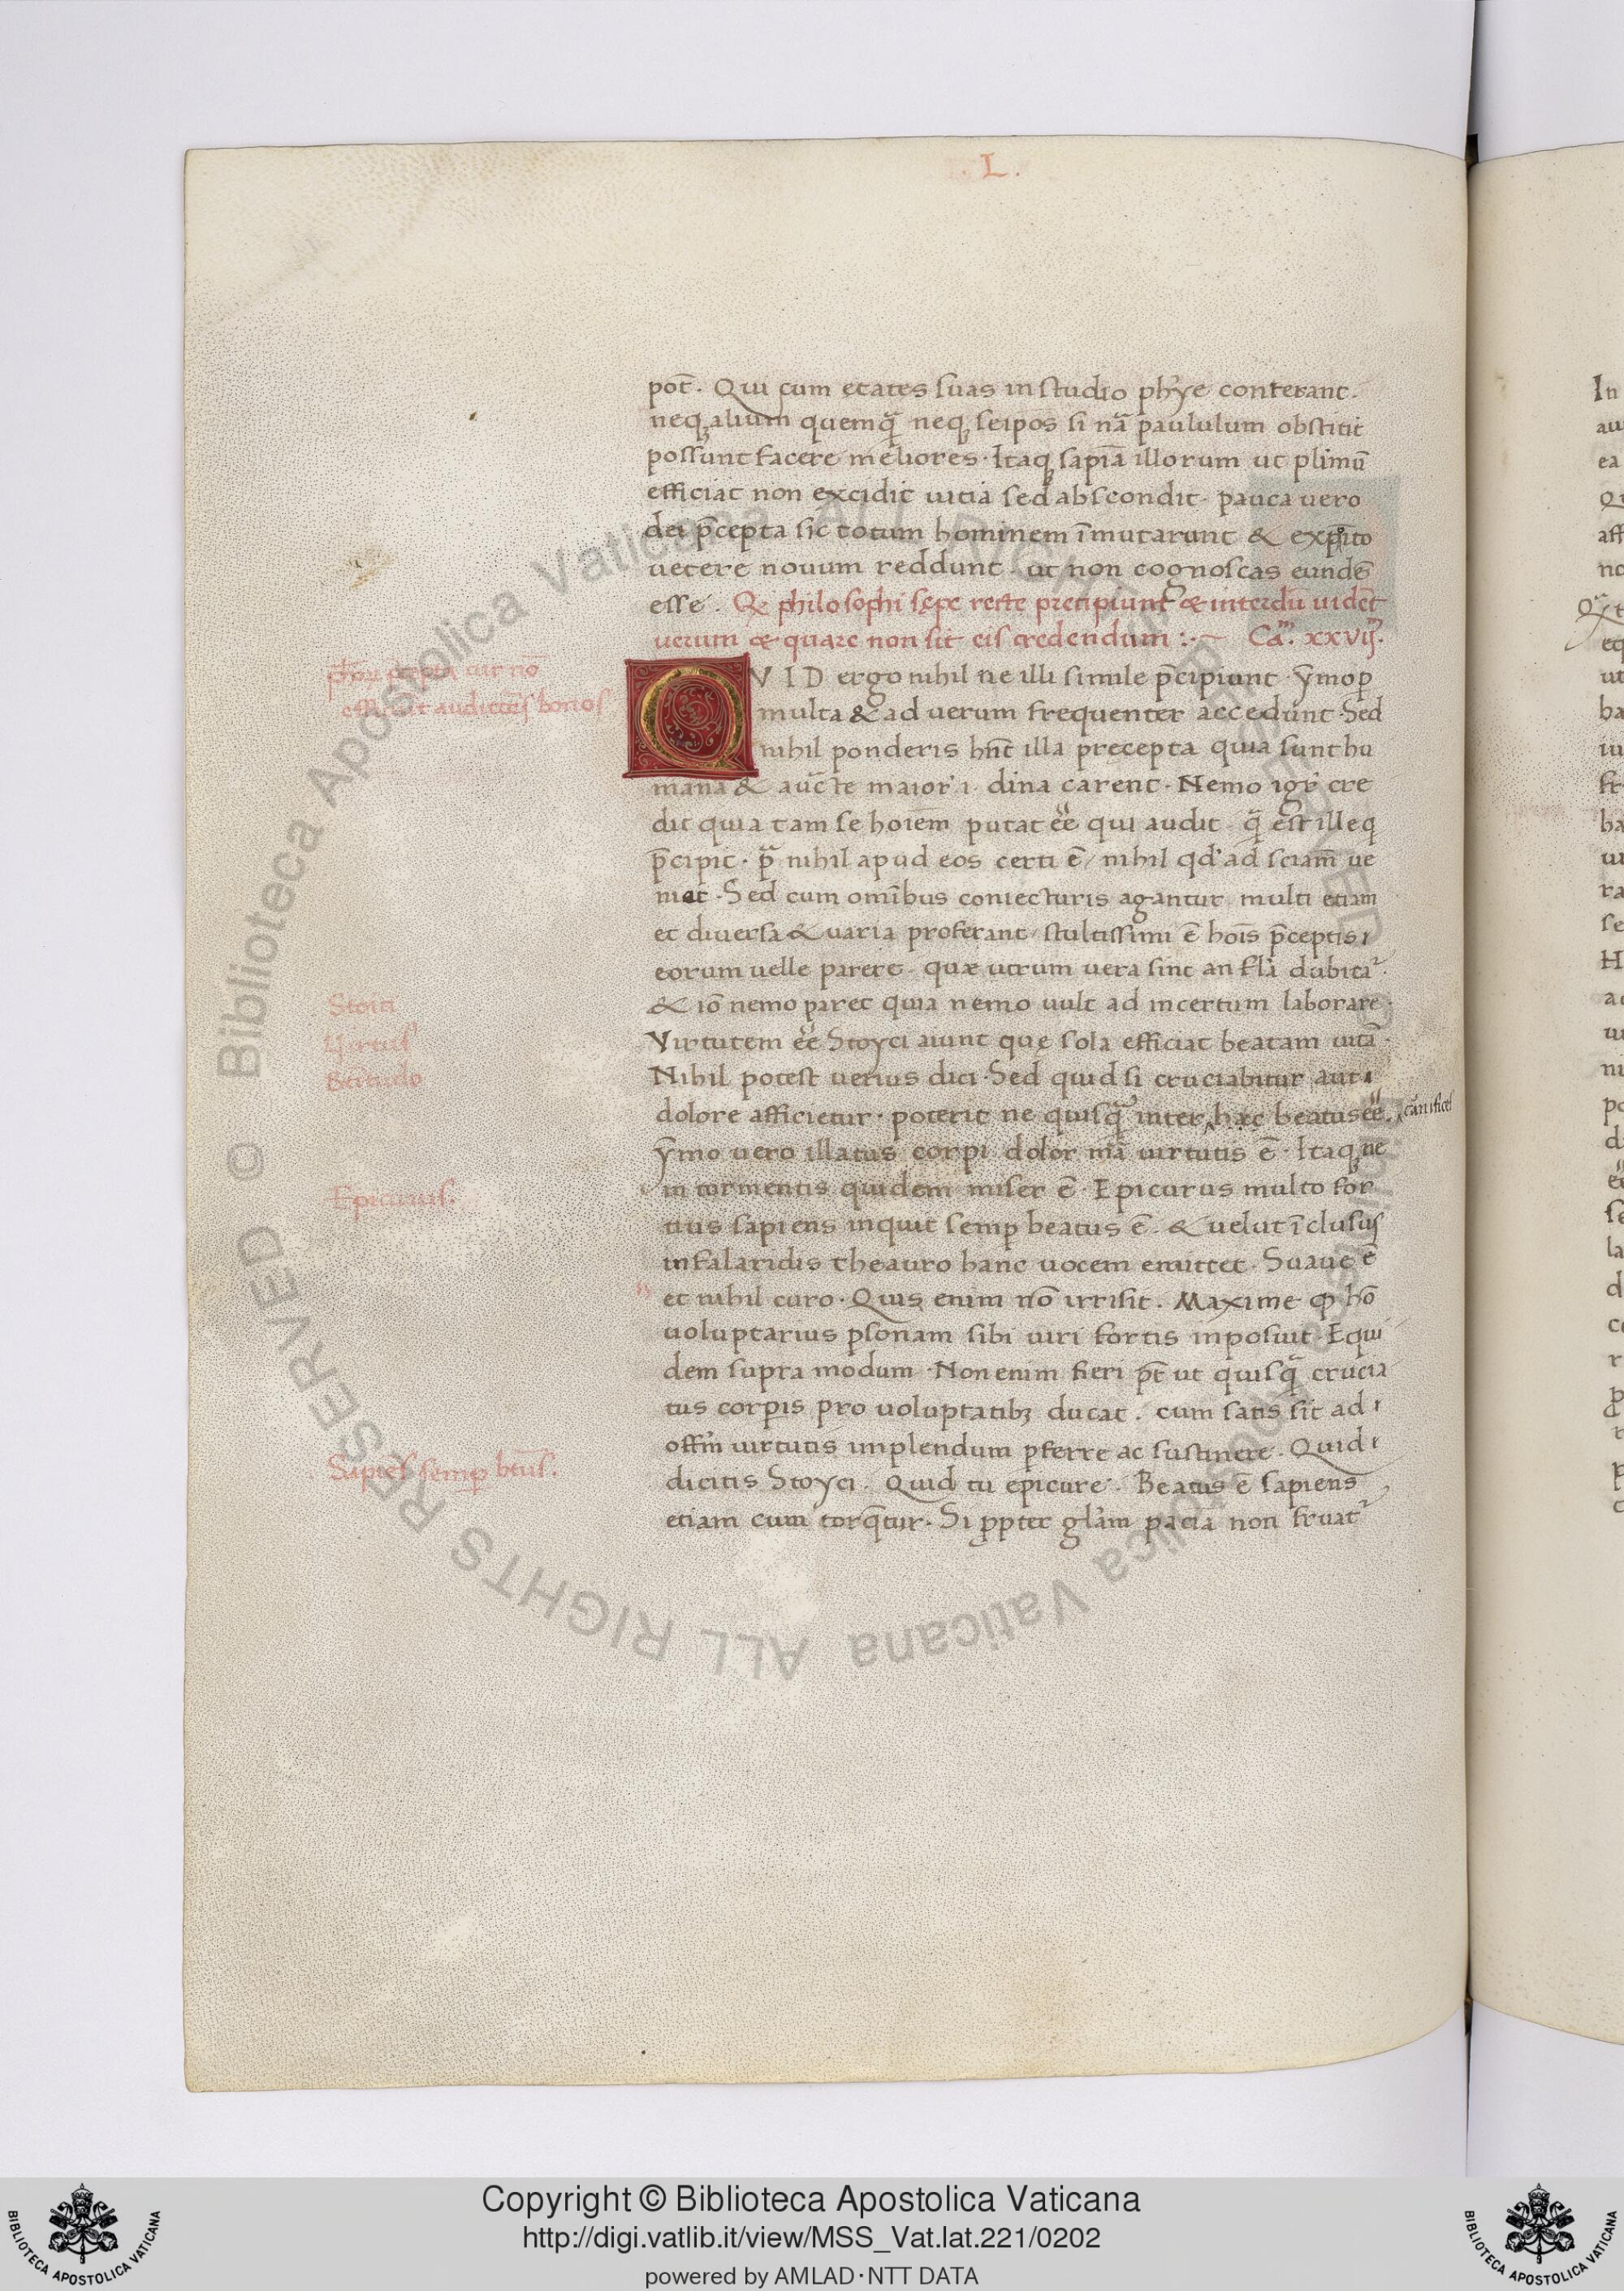 . L .
pot̄. Qui cum etates suas in studio phỹe conterant.
neqꝫ alium quemqᷓ neqꝫ seipos si nãa paululum obstitit
possunt facere meliores. Itaqꝫ sapiãa illorum ut plimũ
efficiat non excidit uitia sed abscondit. pauca uero
dei p̄cepta sic totum hominem ĩmutarunt & exp̱ito
uetere nouum reddunt. ut non cognoscas eundẽ
esse. Qꝫ philosophi sepe recte precipiunt & interdũ uidẽt
uerum & quare non sit eis credendum :. Caᵐ. xxvijᵐ.
QVID ergo nihil ne illi simile p̄cipiunt. ẏmo ꝑ
multa & ad uerum frequenter accedunt. Sed
nihil ponderis hñt illa precepta quia sunt hu
mana & auc̄te maiori .i. diña carent. Nemo igr̃ cre
dit quia tam se hoiem̄ putat ẽe qui audit. qᷓ est ille q
p̄cipit. pᷓ nihil apud eos certi ẽ / nihil qd' ad sciam̄ ue
niat. Sed cum om̃ibus coniecturis agantur multi etiam
et diuersa & uaria proferant / stultissimi ẽ hoĩs p̄ceptis
eorum uelle parere. quæ utrum uera sint an fl̃a dubitar̃.
& iõ nemo paret quia nemo uult ad incertum laborare.
Virtutem ẽe Stoyci aiunt quę sola efficiat beatam uitã.
Nihil potest uerius dici. Sed quid si cruciabitur aut
dolore afficietur. poterit ne quisqᷓ inter hæc beatus ẽe.
carnifices
ẏmo uero illatus corpi dolor mã uirtutis ẽ. Itaqꝫ ne
in tormentis quidem miser ẽ. Epicurus multo for
tius sapiens inquit semꝑ beatus ẽ. & uelut ĩclusus
in falaridis theauro hanc uocem emittet. Suaue ẽ
et nihil curo. Quis enim nõ irrisit. Maxime ꝙ hõ
uoluptarius ꝑsonam sibi uiri fortis inposuit. Equi
dem supra modum. Non enim fieri pt̄ ut quisqᷓ crucia
tus corꝑis pro uoluptatibꝫ ducat. cum satis sit ad
offm̃ uirtutis implendum ꝑferre ac sustinere. Quid
dicitis Stoyci. Quid tu epicure. Beatus ẽ sapiens
etiam cum torq̃tur. Si ꝓpter gl̃am pacia non fruatr̃
ph̃oꝝ p̄cepta cur nõ
efficiũt audiẽtes bonos
Stoici
Virtus
Bt̃itudo
Epicurus.
Sapiẽs semꝑ bt̃us.
Copyright © Biblioteca Apostolica Vaticana
http://digi.vatlib.it/view/MSS_Vat.lat.221/0202
powered by AMLAD·NTT DATA
BIBLIOTECA APOSTOLICA VATICANA
BIBLIOTECA APOSTOLICA VATICANA
© Biblioteca Apostolica Vaticana ALL RIGHTS RESERVED